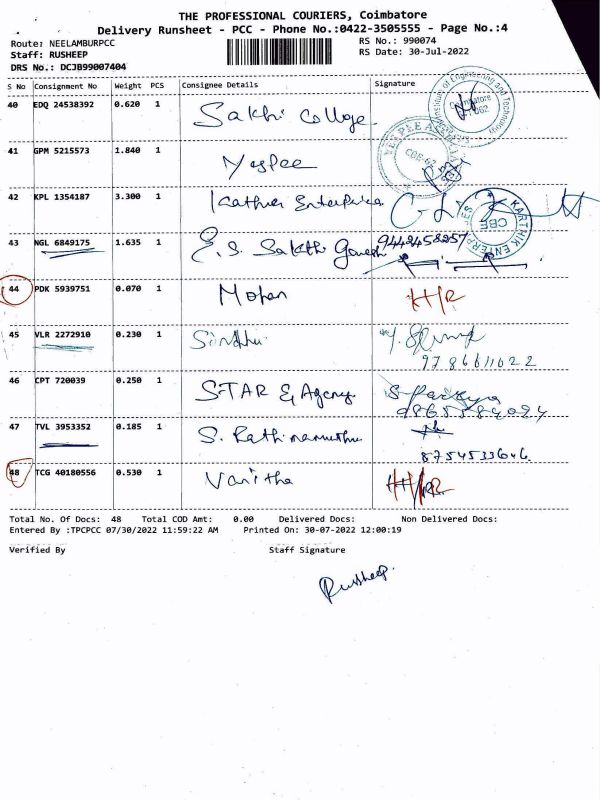 THE PROFESSIONAL COURIERS, Coimbatore
Delivery Runsheet - PCC - Phone No.:0422-3505555 - Page No.:4
Route: NEELAMBURPCC
RS No.: 990074
Staff: RUSHEEP
RS Date: 30-Jul-2022
DRS No.: DCJB99007404
S No Consignment No Weight PCS Consignee Details Signature
40 EDQ 24538392 0.620 1 Sakhi College
41 GPM 5215573 1.840 1 Yespee
42 KPL 1354187 3.300 1 Enterprise
KARTHIK ENTERPRISES CBE
43 NGL 6849175 1.635 1 E.S. Sakthi Ganesh 9442458257
44 PDK 5939751 0.070 1 Mohan H/R
45 VLR 2272910 0.230 1 Sindhu
9786611022
46 CPT 720039 0.250 1 STAR & Agency
9865584094
47 TVL 3953352 0.185 1 S. Rathinamuthu
8754533646
48 TCG 40180556 0.530 1 Vanitha
Total No. Of Docs: 48 Total COD Amt: 0.00 Delivered Docs: Non Delivered Docs:
Entered By :TPCPCC 07/30/2022 11:59:22 AM Printed On: 30-07-2022 12:00:19
Verified By Staff Signature
Rusheep